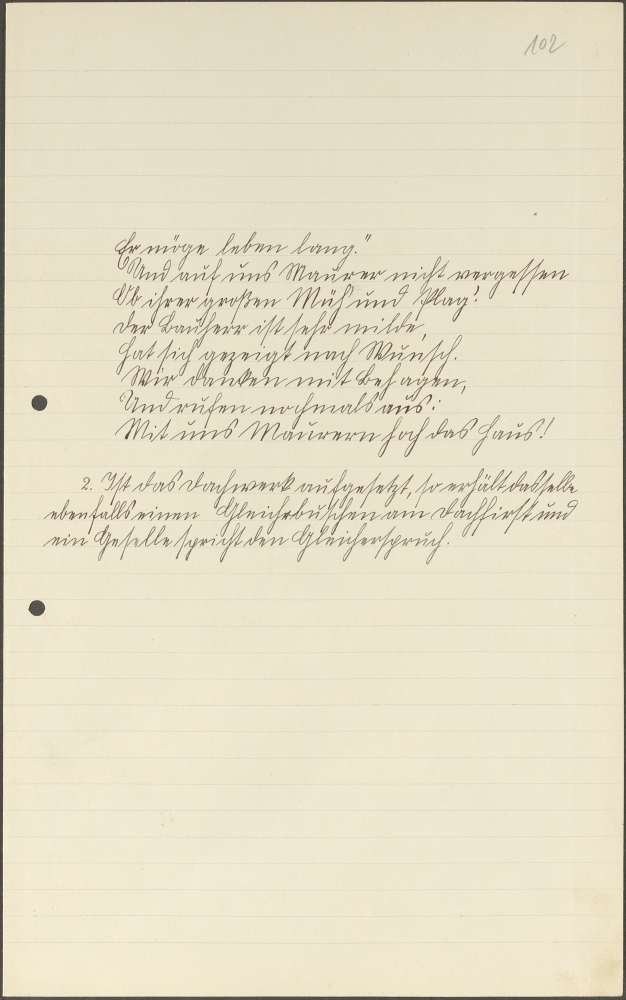 102
Er möge leben lang."
"Und auf uns Maurer nicht vergessen
Ob ihrer großen Müh' und Plag'!
Der Bauherr ist sehr milde,
Hat sich gezeigt nach Wunsch.
Wir danken mit Behagen,
Und rufen nochmals aus:
Mit uns Maurern hoch das Haus!
2. Ist das Dachwerk aufgesetzt, so erhält dasselbe
ebenfalls einen Gleichebuschen am Dachfirst und
ein Geselle spricht den Gleicherspruch.